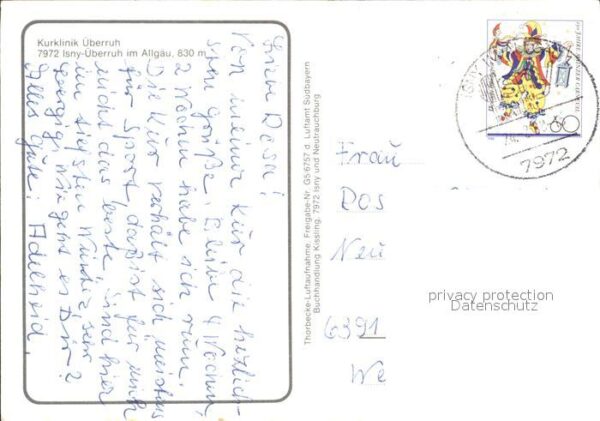 Kurklinik Überruh
7972 Isny-Überruh im Allgäu, 830 m
Liebe Rosa!
Von meiner Kur die herzlich-
sten Grüße. Bleibe 4 Wochen,
2 Wochen habe ich rum.
Die Kur verhält sich meistens
für Sport, das ist für mich
nicht das beste, und hier
im tiefsten Winter, sehr
Wie geht es Dir?
Alles Gute! Adelheid.
Thorbecke-Luftaufnahme, Freigabe-Nr. GS 6757 d. Luftamt Südbayern
Buchhandlung Kissling, 7972 Isny und Neutrauchburg
150 JAHRE MAINZER CARNEVAL
60
ISNY
7972
Frau
Ros
Neu
6391
We
privacy protection
Datenschutz